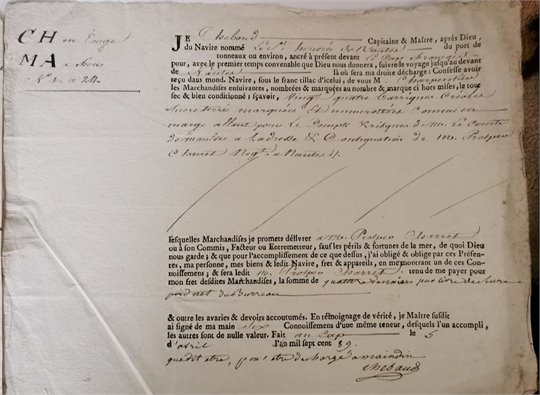 CH en Rouge
MA
N° 1 à 24
JE Chebaud Capitaine & Maître, après Dieu,
du Navire nommé Le St honoré de Nantes du port de
tonneaux ou environ, ancré à présent devant Le Cap
pour, avec le premier temps convenable que Dieu nous donnera, suivre le voyage jusqu'au devant
de Nantes là où sera ma droite décharge: Confesse avoir
reçu dans mond. Navire, sous le franc tillac d'icelui, de vous M Charpentier
les Marchandises ensuivantes, nombrées & marquées au nombre & marque ci hors mises, le tout
sec & bien conditionné; sçavoir, Vingt quatre Barriques
Sucre terré marquées Et numerottées comme en
marge allant pour le Compte & risques de M. Le Comte
à Ladresse & Consignation de M.
Charet Negt. à Nantes
lesquelles Marchandises je promets délivrer à M. Charret
ou à son Commis, Facteur ou Entremetteur, sauf les périls & fortunes de la mer, de quoi Dieu
nous garde; & que pour l'accomplissement de ce que dessus, j'ai obligé & oblige par ces Présentes,
ma personne, mes biens & ledit Navire, fret & appareils, en me montrant un de ces Connoissemens;
& sera ledit M. Charret tenu de me payer pour
mon fret desdites Marchandises, la somme de quatre deniers par livre de Sucre
poid net du Bureau
& outre les avaries & devoirs accoutumés. En témoignage de vérité, je Maître susdit
ai signé de ma main Six Connoissemens d'une même teneur, desquels l'un accompli,
les autres sont de nulle valeur. Fait au Cap le 5
d'avril l'an mil sept cent 89.
que dit être, pour être dechargé à
chebaud